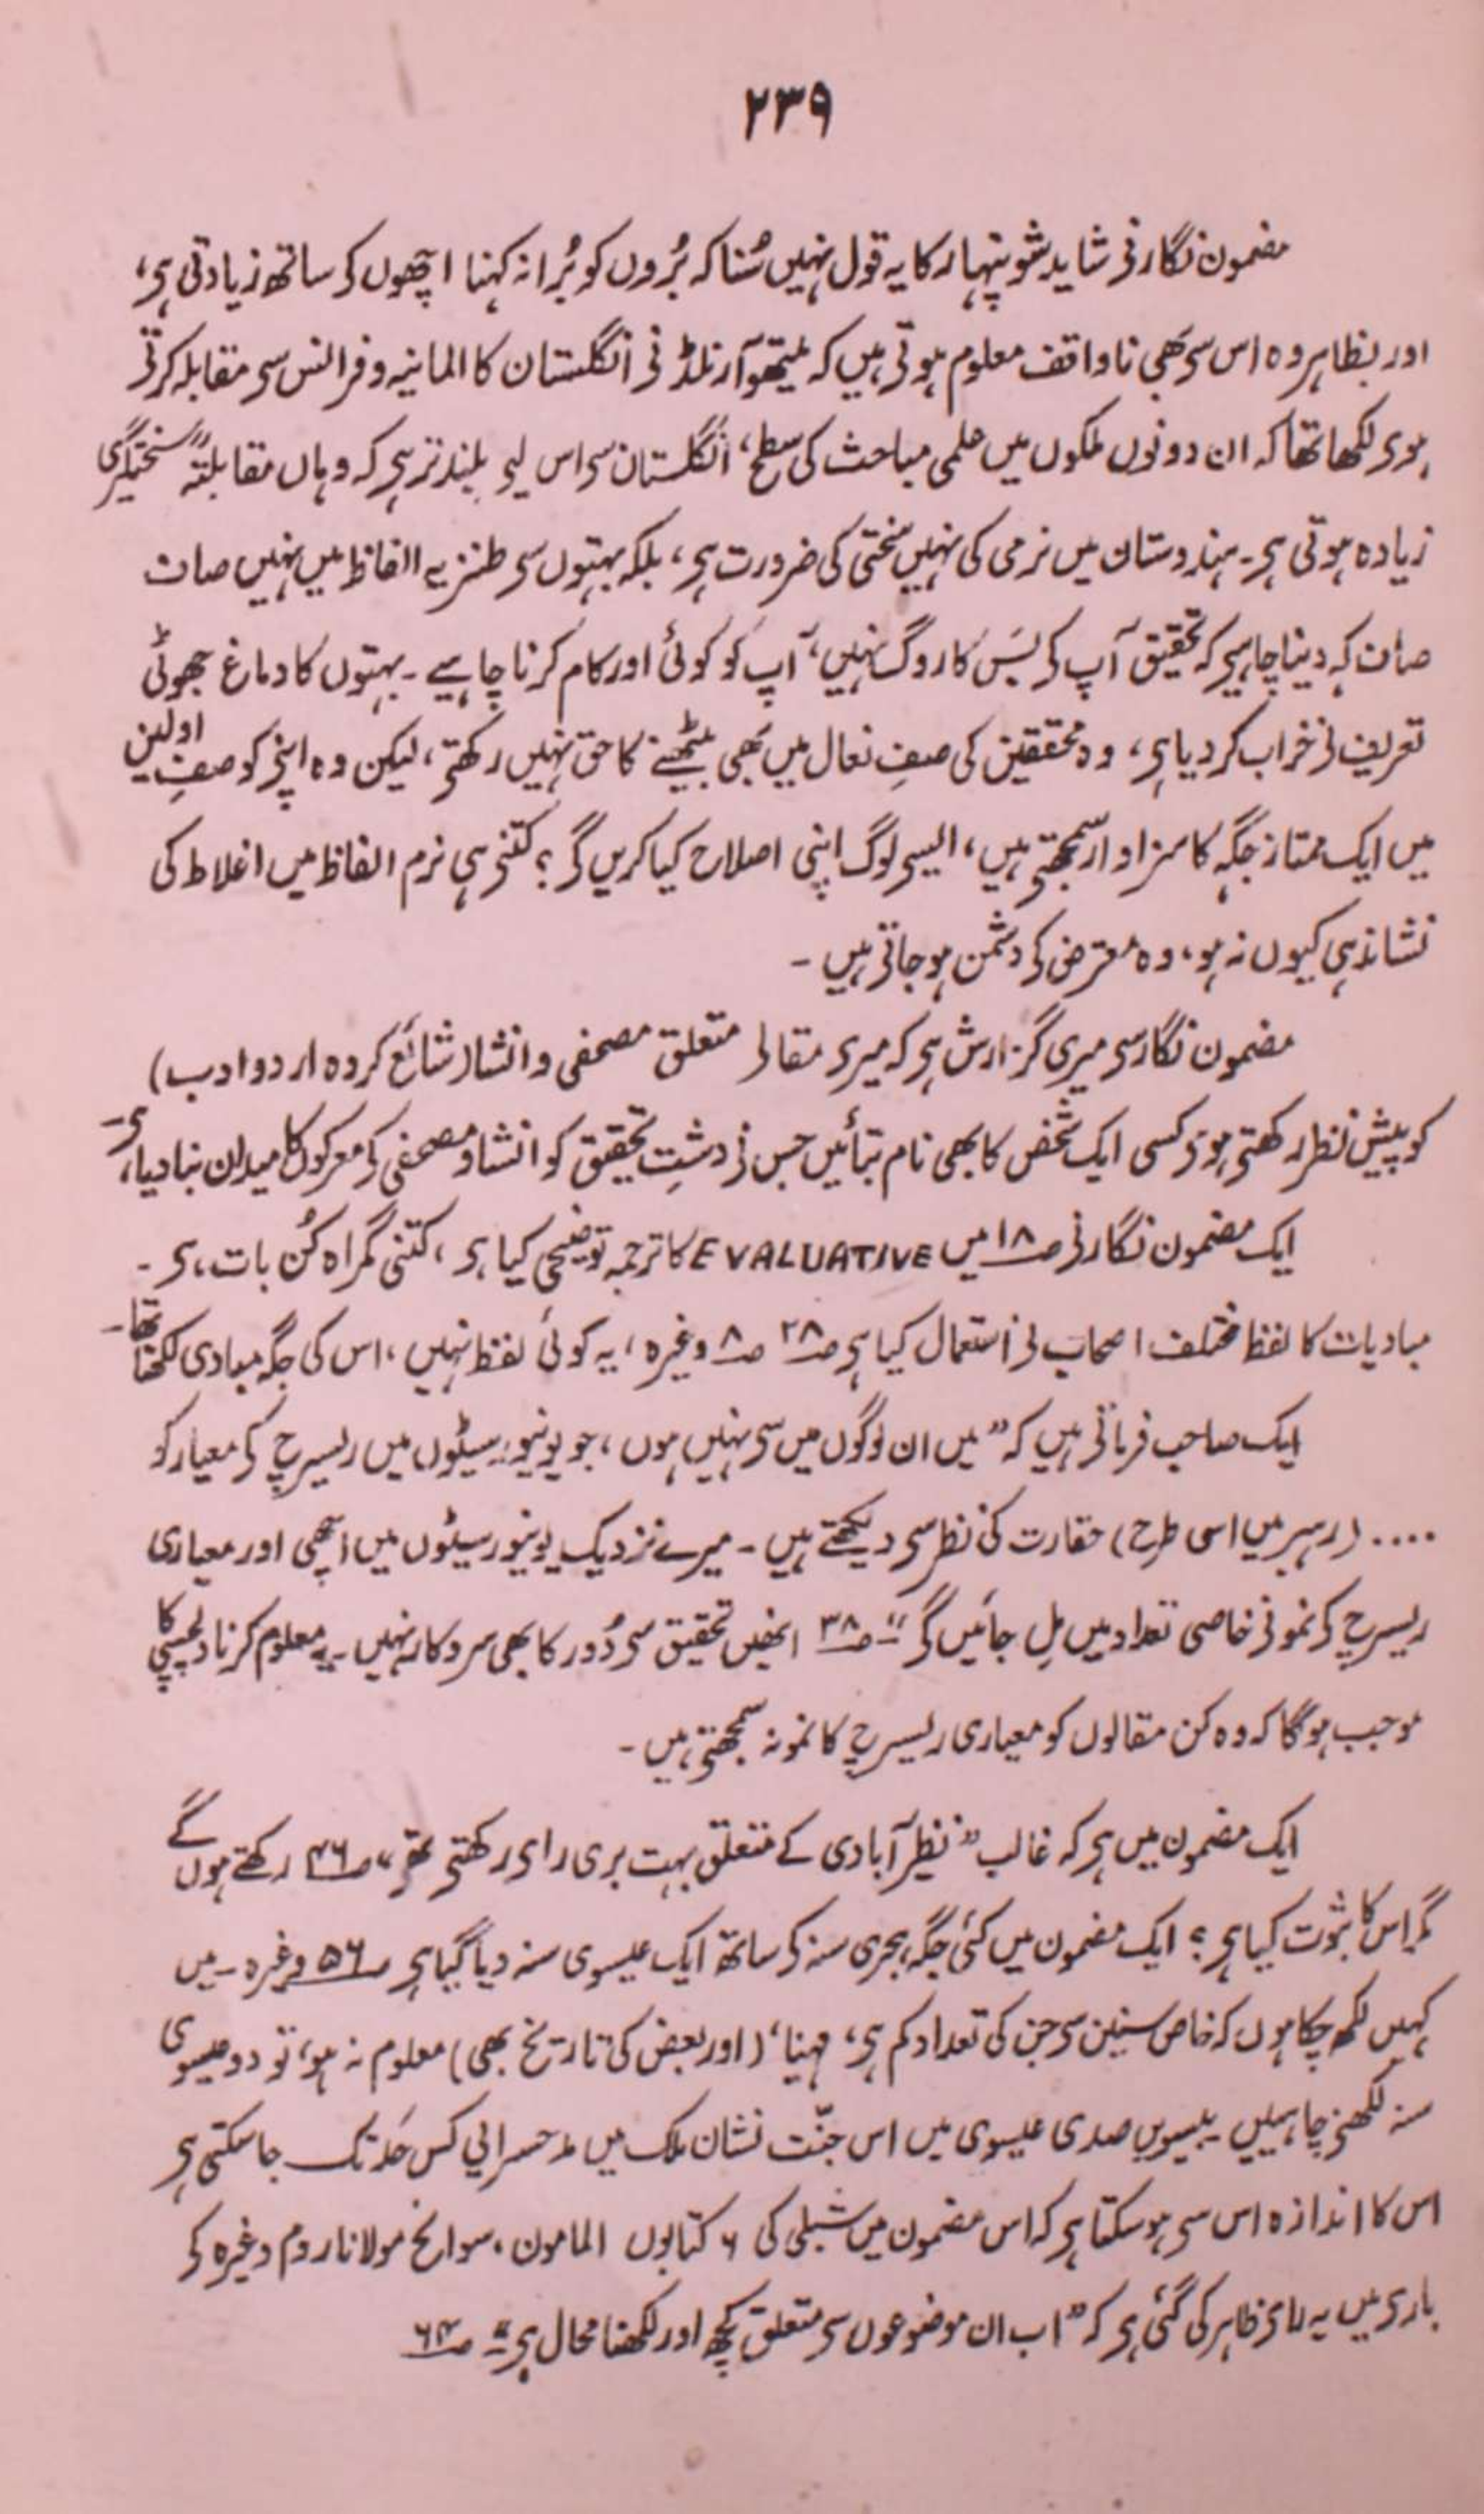 ۲۳۹
مضمون نگار نی شاید شوپنہار کا یہ قول نہیں سُنا کہ بُروں کو بُرا نہ کہنا اچھوں کی ساتھ زیادتی ہی،
اور بظاہر وہ اس سی بھی ناواقف معلوم ہوتی ہیں کہ میتھو آرنلڈ نی انگلستان کا المانیہ و فرانس سی مقابلہ کرتی
ہوی لکھا تھا کہ ان دونوں ملکوں میں علمی مباحث کی سطح، انگلستان سی اس لیی بلند تر ہی کہ وہاں مقابلتہً سختگیری
زیادہ ہوتی ہی۔ ہندوستان میں نرمی کی نہیں سختی کی ضرورت ہی، بلکہ بہتوں سی طنزیہ الفاظ میں نہیں صاف
صاف کہ دینا چاہیی کہ تحقیق آپ کی بَس کا روگ نہیں، آپ کو کوئی اور کام کرنا چاہیے۔ بہتوں کا دماغ جھوٹی
تعریف نی خراب کر دیا ہی، وہ محققین کی صفِ نعال میں بھی بیٹھنے کا حق نہیں رکھتی، لیکن وہ اپنی کو صفِ اولین
میں ایک ممتاز جگہ کا سزاوار سمجھتی ہیں، ایسی لوگ اپنی اصلاح کیا کریں گی؟ کتنی ہی نرم الفاظ میں اغلاط کی
نشاندہی کیوں نہ ہو، وہ معترض کی دشمن ہو جاتی ہیں۔
مضمون نگار سی میری گزارش ہی کہ میری مقالی متعلق مصحفی و انشا (شائع کردہ اردو ادب)
کو پیش نظر رکھتی ہوی کسی ایک شخص کا بھی نام بتائیں جس نی دشتِ تحقیق کو انشا و مصحفی کی معرکوں کا میدان بنا دیا ہی۔
ایک مضمون نگار نی صـ۱۸ میں EVALUATIVE کا ترجمہ توضیحی کیا ہی، کتنی گمراہ کُن بات ہی۔
مبادیات کا لفظ مختلف اصحاب نی استعمال کیا ہی صـ۲۸ صـ۸ وغیرہ، یہ کوئی لفظ نہیں، اس کی جگہ مبادی لکھنا تھا۔
ایک صاحب فرماتی ہیں کہ "میں ان لوگوں میں سی نہیں ہوں، جو یونیورسیٹوں میں ریسرچ کی معیار کو
.... (رہبر میں اسی طرح) حقارت کی نظر سی دیکھتے ہیں۔ میرے نزدیک یونیورسیٹوں میں اچھی اور معیاری
ریسرچ کی نمونی خاصی تعداد میں مِل جائیں گی" صـ۳۸ انھیں تحقیق سی دُور کا بھی سروکار نہیں۔ یہ معلوم کرنا دلچسپی کا
موجب ہوگا کہ وہ کن مقالوں کو معیاری ریسرچ کا نمونہ سمجھتی ہیں۔
ایک مضمون میں ہی کہ غالب "نظیر آبادی کے متعلق بہت بری رای رکھتی تھی" صـ۴۶ رکھتے ہوں گے
مگر اس کا ثبوت کیا ہی؟ ایک مضمون میں کئی جگہ ہجری سنہ کی ساتھ ایک عیسوی سنہ دیا گیا ہی صـ۵۶ وغیرہ۔ میں
کہیں لکھ چکا ہوں کہ خاص سنین سی جن کی تعداد کم ہی، مہنیا، (اور بعض کی تاریخ بھی) معلوم نہ ہو، تو دو عیسوی
سنہ لکھنی چاہییں بیسویں صدی عیسوی میں اس جنّت نشان ملک میں مدحسرایی کس حَد تک جا سکتی ہی
اس کا اندازہ اس سی ہو سکتا ہی کہ اس مضمون میں شبلی کی ۶ کتابوں المامون، سوانح مولانا روم وغیرہ کی
باری میں یہ رای ظاہر کی گئی ہی کہ "اب ان موضوعوں سی متعلق کچھ اور لکھنا محال ہی" صـ۶۴